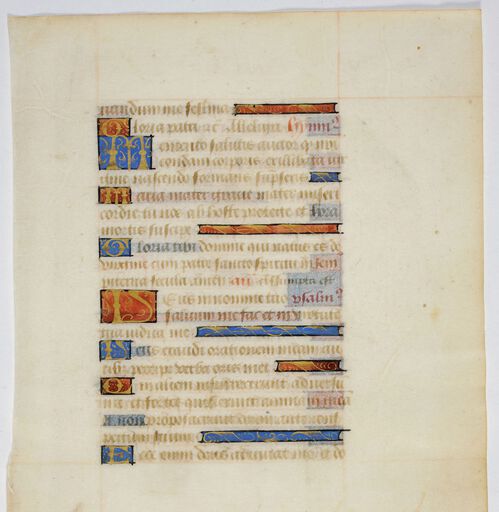 uandum me festina
Gloria patri et Alleluya hymn⁹
Memento salutis auctor q nri
condam corporis ex illibata vir
gine nascendo formam sumpseris
Maria mater gracie mater miseri
cordie tu nos ab hoste protege et hora
mortis suscipe
Gloria tibi domine qui natus es de
virgine cum patre sancto spiritu in sem
piterna secula amen an assumpta est
psalm⁹
Deus in nomine tuo
salvum me fac et in v
tua iudica me
Deus exaudi orationem meam au
ribus percipe verba oris mei
alieni insurrexerunt adversu
me et fortes quesierunt animam mea
et non proposuerunt deum ante conf
pectum suum
Ecce enim deus adiuvat me et do